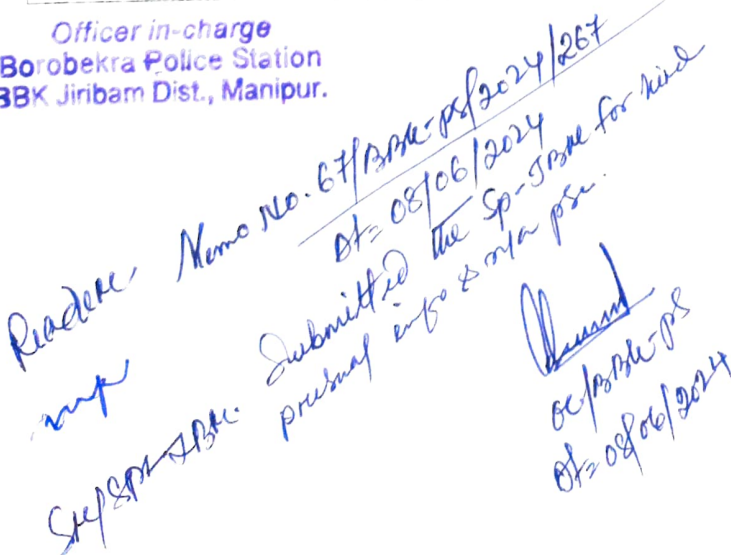 Officer in-charge
Borobekra Police Station
BBK Jiribam Dist., Manipur.
Memo No. 67/BBK-PS/2024/267
Dt= 08/06/2024
Submitted the SP-JBM for kind
perusal info & n/a pse.
OC/BBK-PS
Dt= 08/06/2024